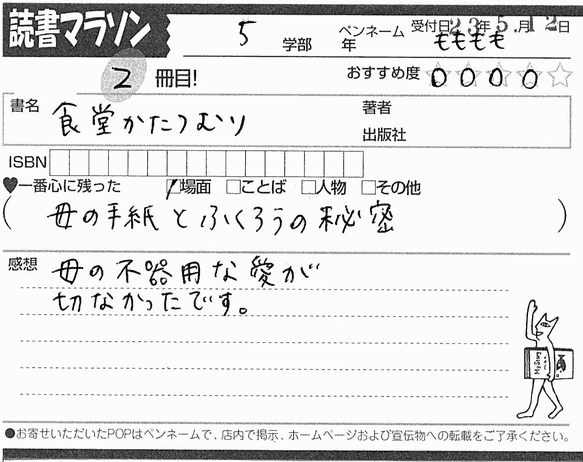 読書マラソン
5 学部 年
ペンネーム もももも
受付日 23年 5.月12日
2 冊目!
おすすめ度
書名 食堂かたつむり
著者
出版社
ISBN
♥一番心に残った 場面 ことば 人物 その他
( 母の手紙とふくろうの秘密 )
感想 母の不器用な愛が
切なかったです。
●お寄せいただいたPOPはペンネームで、店内で掲示、ホームページおよび宣伝物への転載をご了承ください。